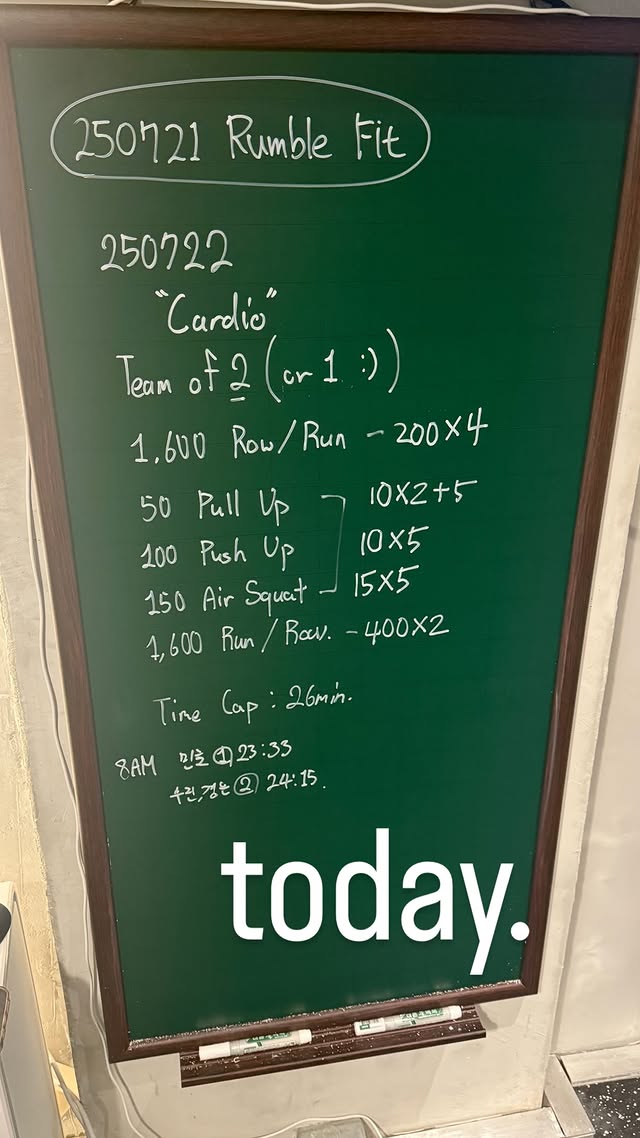 250721 Rumble Fit
250722
"Cardio"
Team of 2 (or 1 :))
1,600 Row/Run - 200×4
50 Pull Up 10×2+5
100 Push Up 10×5
150 Air Squat 15×5
1,600 Run/Row. - 400×2
Time Cap : 26min.
8AM ① 23:33
② 24:15.
today.